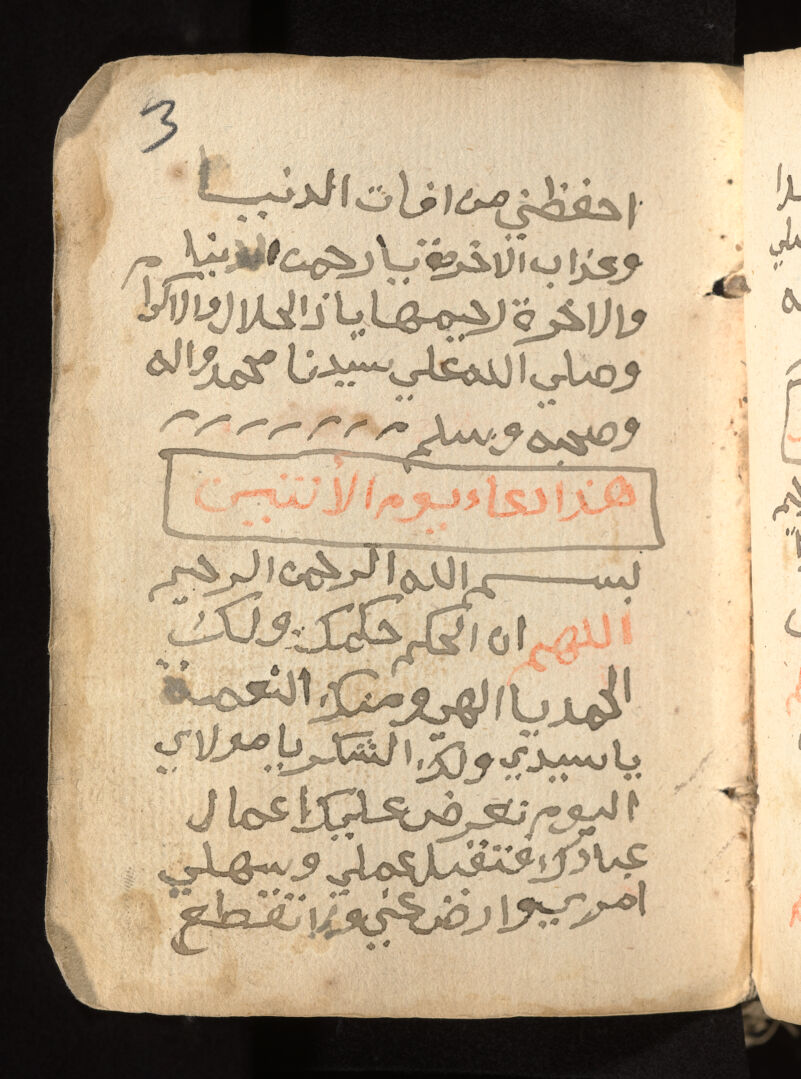 3
احفظني من افات الدنيا
وعذاب الاخرة يا رحمن الدنيا
والاخرة رحيمهما ياذا الجلال والاكرام
وصلي الله علي سيدنا محمد واله
وصحبه وسلم
هذا دعاء يوم الأثنين
بسم الله الرحمن الرحيم
اللهم ان الحكم حكمك ولك
الحمد يا الهي ومنك النعمة
يا سيدي ولك الشكر يا مولاي
اليوم تعرض عليك اعمال
عبادك فتقبل عملي وسهلي
امري وارض عني ولا تقطع